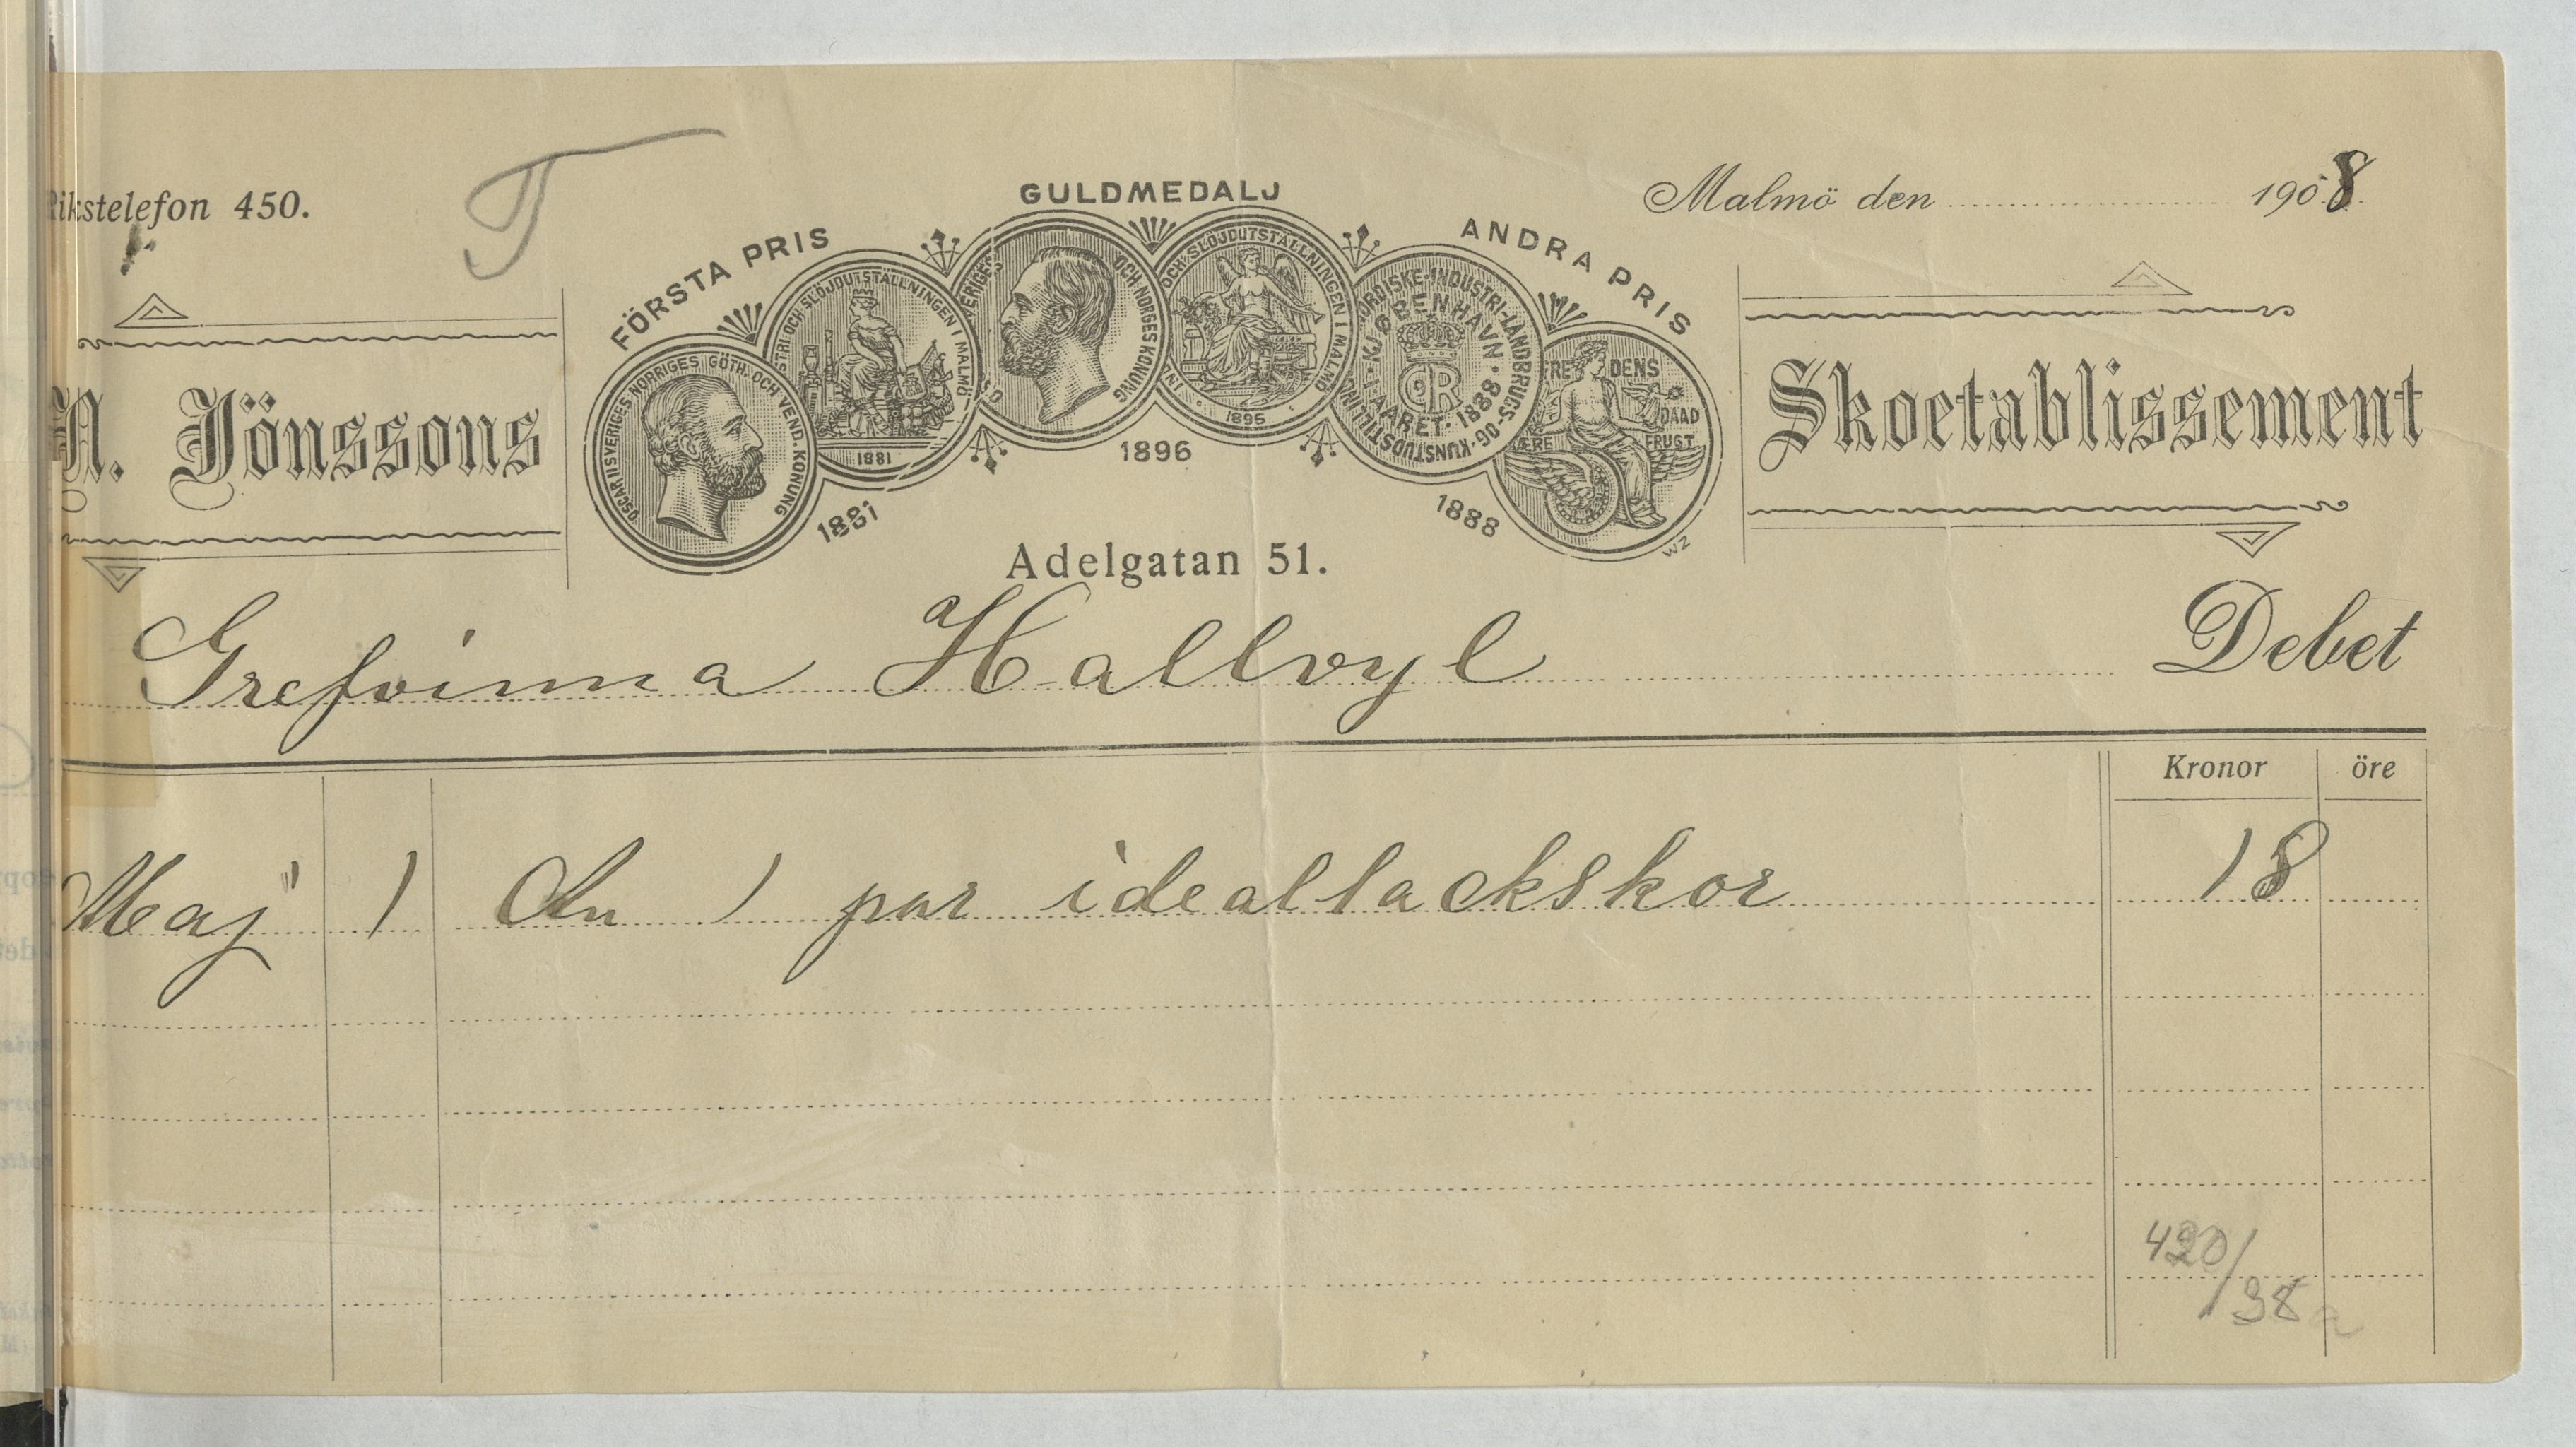 Rikstelefon 450.
T
GULDMEDALJ
FÖRSTA PRIS
ANDRA PRIS
Malmö den 1908
OSCAR II SVERIGES NORRIGES GÖTH. OCH VEND. KONUNG
STRI OCH SLÖJDUTSTÄLLNINGEN I MALMÖ
1881
SVERIGES OCH NORGES KONUNG
IND OCH SLÖJDUTSTÄLLNINGEN I MALMÖ
1895
NORDISKE-INDUSTRI-LANDBRUGS-OG-KUNSTUDSTILLING
I KJØBENHAVN
I AARET 1888
FREDENS
DAAD
ÆRE FRUGT
1881
1896
1888
WZ
N. Jönssons
Skoetablissement
Adelgatan 51.
Grefvinna Hallvyl Debet
Kronor öre
Maj 1 An 1 par ideallackskor 18
420/
38a